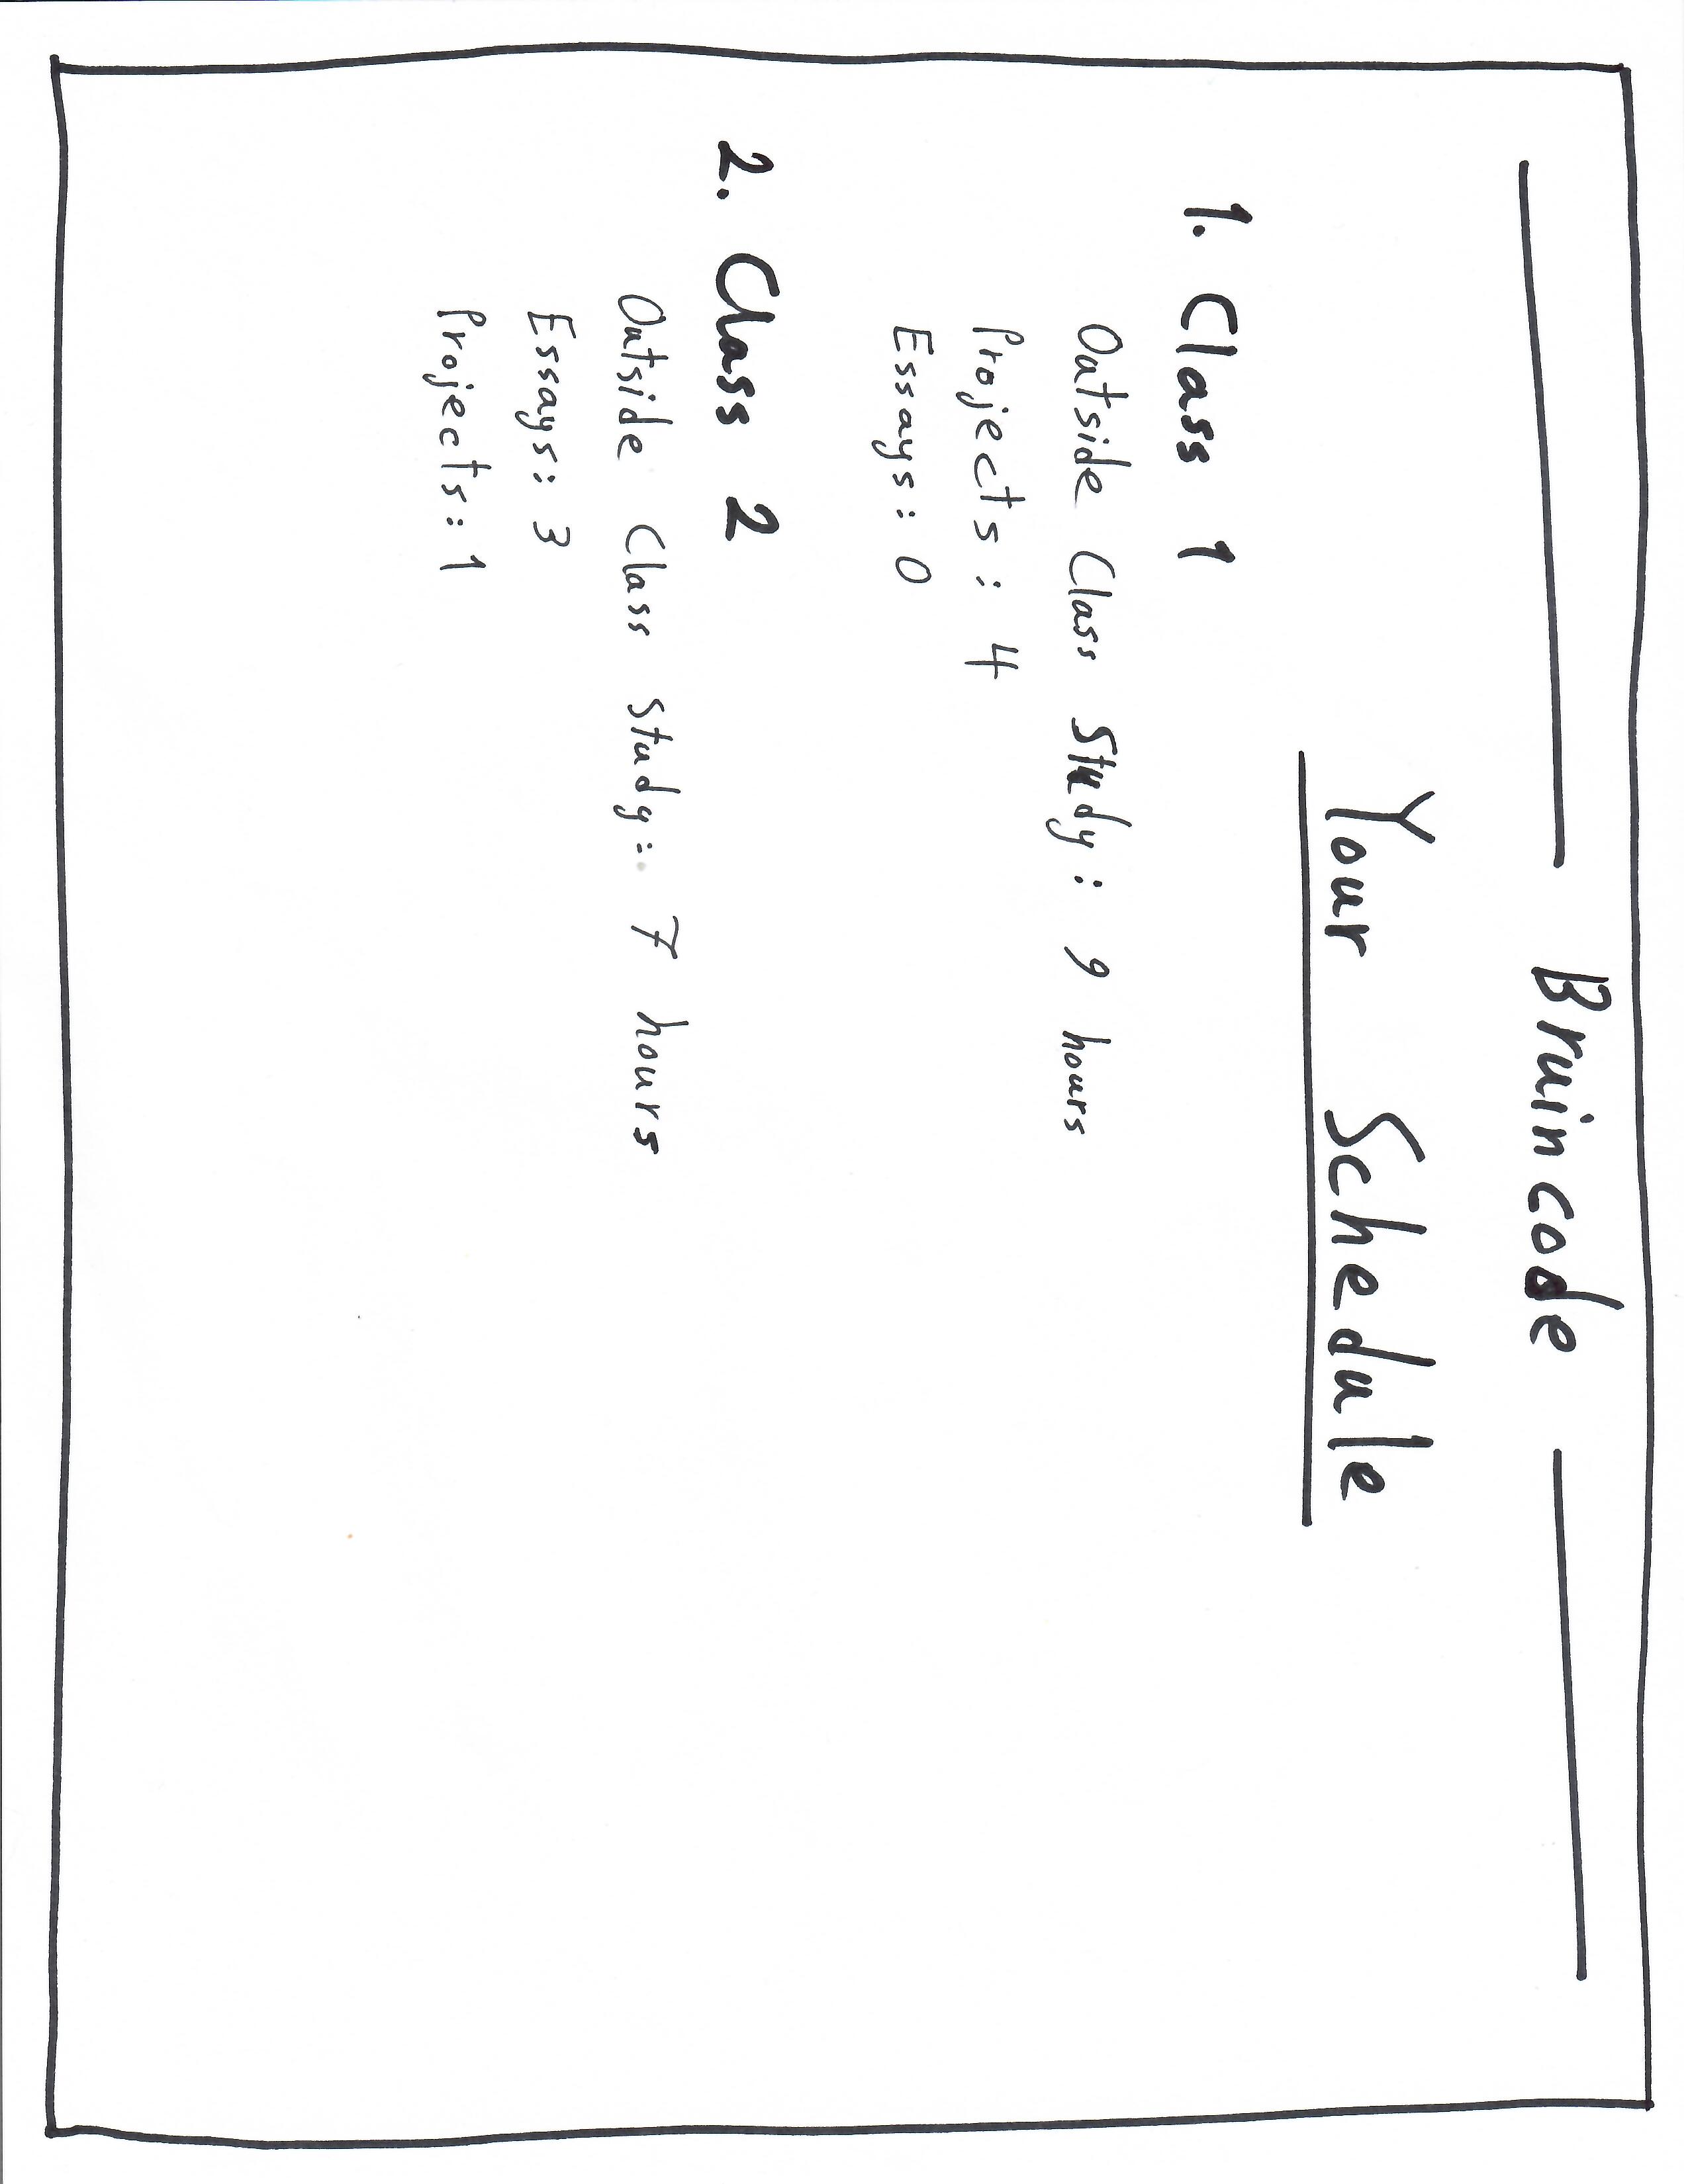 Bruincode
Your Schedule
1. Class 1
Outside Class Study: 9 hours
Projects: 4
Essays: 0
2. Class 2
Outside Class Study: 7 hours
Essays: 3
Projects: 1